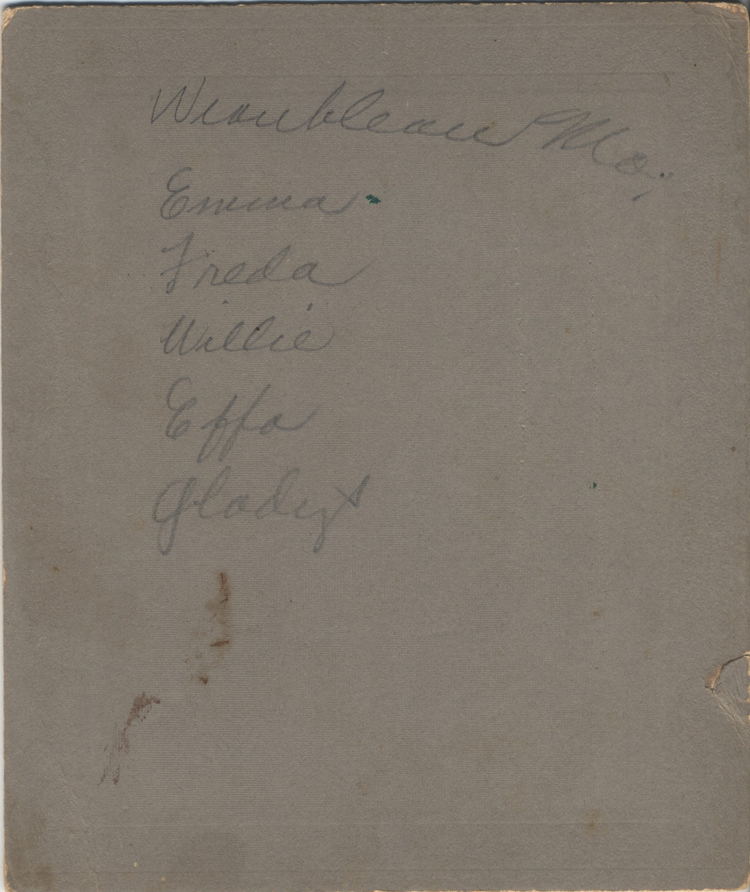 Wroubleau Mo.
Emma
Freda
Willie
Effa
Gladys